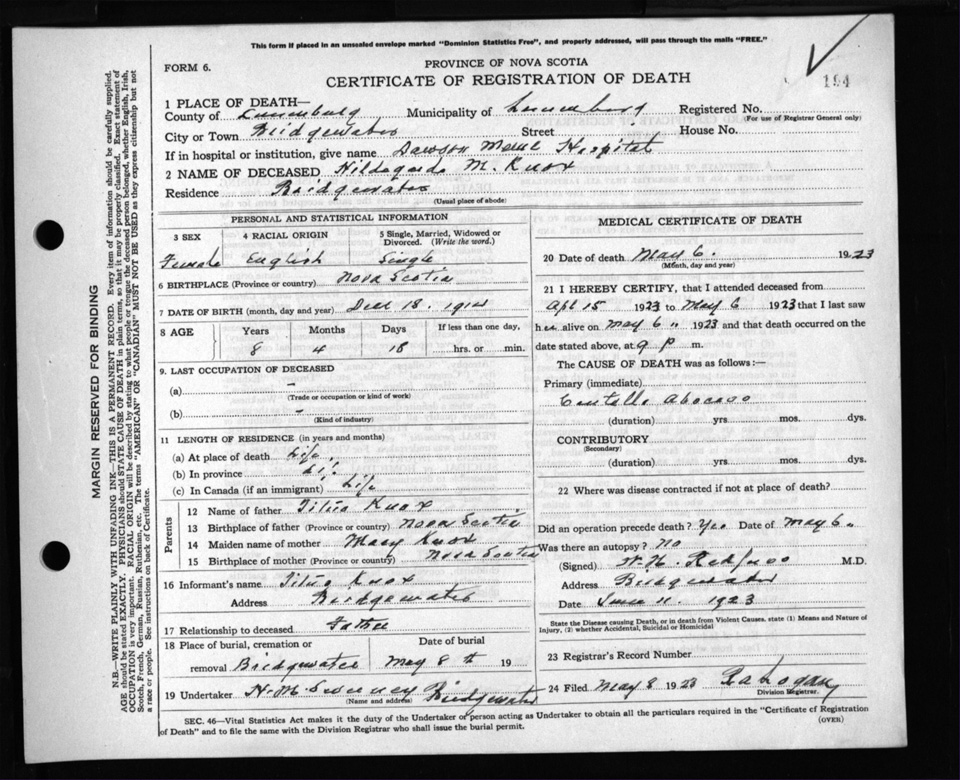 This form if placed in an unsealed envelope marked "Dominion Statistics Free", and properly addressed, will pass through the mails "FREE."
194
FORM 6.
PROVINCE OF NOVA SCOTIA
CERTIFICATE OF REGISTRATION OF DEATH
MARGIN RESERVED FOR BINDING
N.B.—WRITE PLAINLY WITH UNFADING INK—THIS IS A PERMANENT RECORD. Every item of information should be carefully supplied.
AGE should be stated EXACTLY. PHYSICIANS should STATE CAUSE OF DEATH in plain terms, so that it may be properly classified. Exact statement of
OCCUPATION is very important. RACIAL ORIGIN will be described by stating to what people or tongue the deceased person belonged, whether English, Irish,
Scotch, French, German, Russian, Ruthenian, etc. The terms "AMERICAN" OR "CANADIAN" MUST NOT BE USED as they express citizenship but not
a race or people. See instructions on back of Certificate.
1 PLACE OF DEATH—
County of Lunenburg Municipality of Lunenburg Registered No.
(For use of Registrar General only)
City or Town Bridgewater Street House No.
If in hospital or institution, give name Dawson Meml Hospital
2 NAME OF DECEASED Hildegarde M. Knox
Residence Bridgewater
(Usual place of abode)
PERSONAL AND STATISTICAL INFORMATION
3 SEX 4 RACIAL ORIGIN 5 Single, Married, Widowed or Divorced. (Write the word.)
Female English Single
6 BIRTHPLACE (Province or country) Nova Scotia
7 DATE OF BIRTH (month, day and year) Dec 18. 1914
8 AGE Years Months Days If less than one day,
8 4 18 hrs. or min.
9. LAST OCCUPATION OF DECEASED
(a) –
(Trade or occupation or kind of work)
(b) –
(Kind of industry)
11 LENGTH OF RESIDENCE (in years and months)
(a) At place of death Life
(b) In province Life
(c) In Canada (if an immigrant) Life
Parents
12 Name of father Titus Knox
13 Birthplace of father (Province or country) Nova Scotia
14 Maiden name of mother Mary Knox
15 Birthplace of mother (Province or country) Nova Scotia
16 Informant's name Titus Knox
Address Bridgewater
17 Relationship to deceased Father
18 Place of burial, cremation or Date of burial
removal Bridgewater May 8th 19
19 Undertaker H. M. Sweeney Bridgewater
(Name and address)
MEDICAL CERTIFICATE OF DEATH
20 Date of death May 6. 1923
(Month, day and year)
21 I HEREBY CERTIFY, that I attended deceased from
Apl 15 1923 to May 6 1923 that I last saw
her alive on May 6 " 1923 and that death occurred on the
date stated above, at 9 P m.
The CAUSE OF DEATH was as follows:—
Primary (immediate)
(duration) yrs. mos. dys.
CONTRIBUTORY
(Secondary)
(duration) yrs. mos. dys.
22 Where was disease contracted if not at place of death?
Did an operation precede death? Yes Date of May 6 "
Was there an autopsy? No
(Signed) M.D.
Address Bridgewater
Date June 11. 1923
State the Disease causing Death, or in death from Violent Causes, state (1) Means and Nature of
Injury, (2) whether Accidental, Suicidal or Homicidal
23 Registrar's Record Number
24 Filed May 8 1923
Division Registrar.
SEC. 46—Vital Statistics Act makes it the duty of the Undertaker or person acting as Undertaker to obtain all the particulars required in the "Certificate of Registration
of Death" and to file the same with the Division Registrar who shall issue the burial permit.
(OVER)